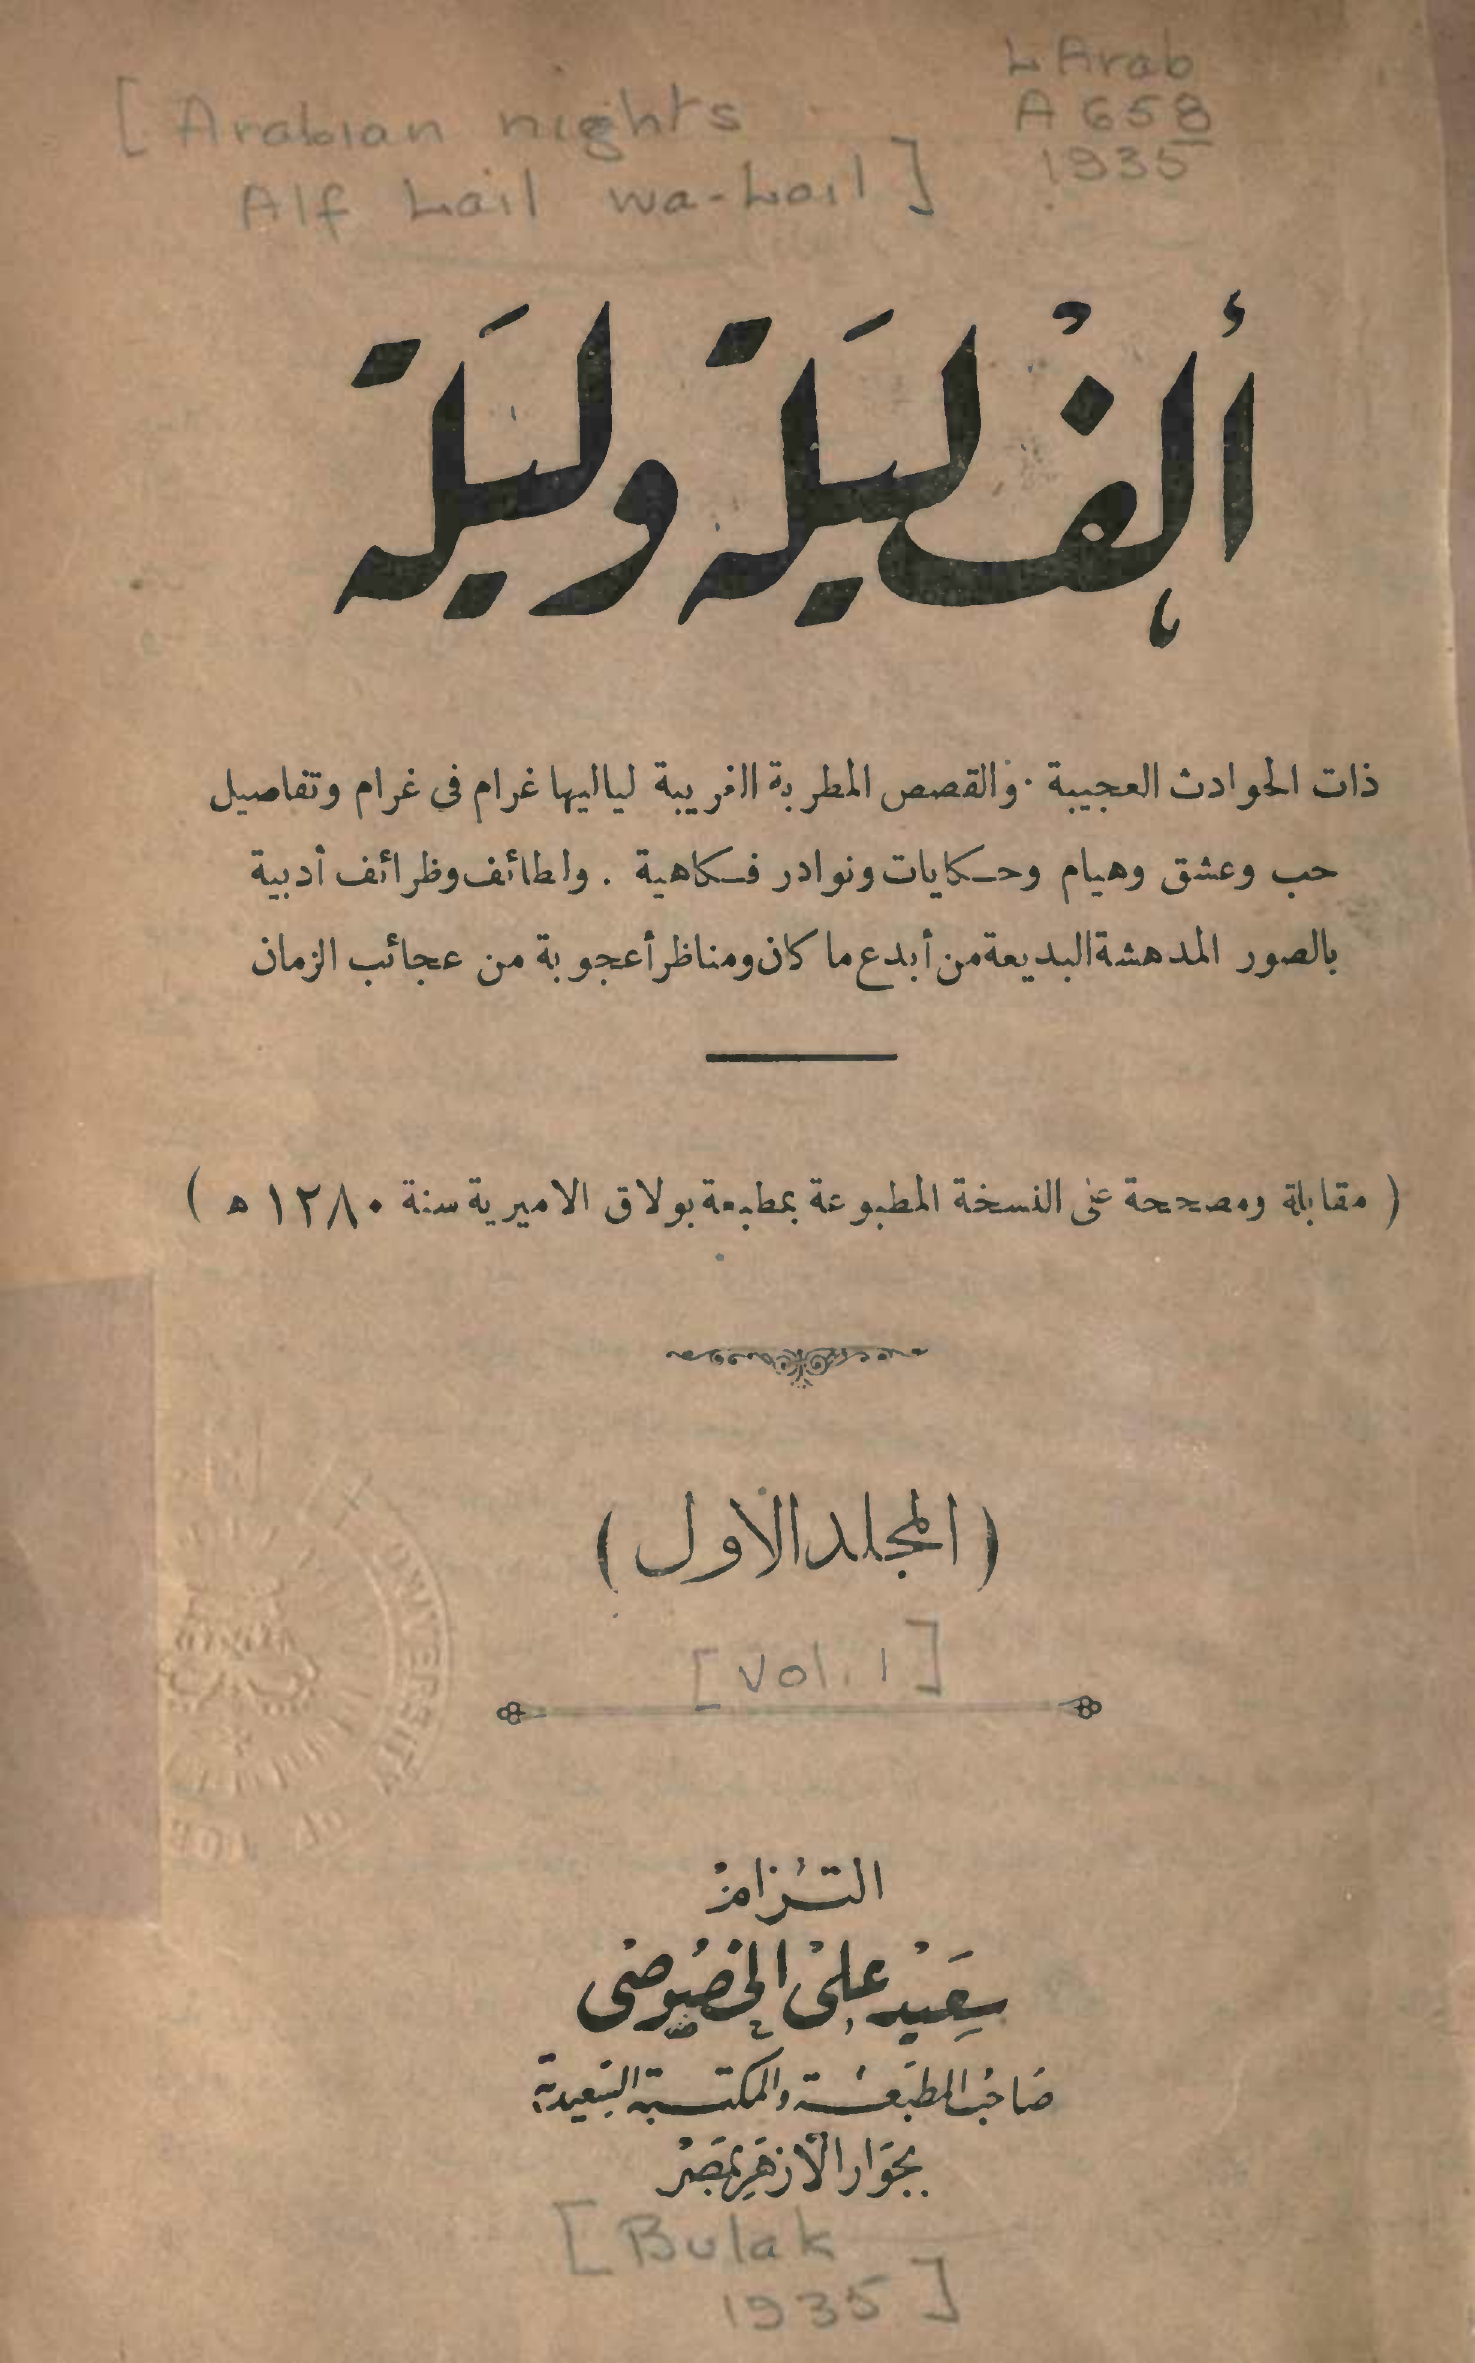 [ Arabian nights
Alf Lail wa-Lail ]
L Arab
A 658
1935
ألف ليلة وليلة
ذات الحوادث العجيبة . والقصص المطربة الغريبة لياليها غرام فى غرام وتفاصيل
حب وعشق وهيام وحكايات ونوادر فكاهية . ولطائف وظرائف أدبية
بالصور المدهشة البديعة من أبدع ما كان ومناظر أعجوبة من عجائب الزمان
( مقابلة ومصححة على النسخة المطبوعة بمطبعة بولاق الاميرية سنة ١٢٨٠ ه )
( المجلد الاول )
[ Vol. 1 ]
التزام
سعيد على الخصوصى
صاحب المطبعة والمكتبة السعيدية
بجوار الأزهر بمصر
[ Bulak
1935 ]
UNIVERSITY OF